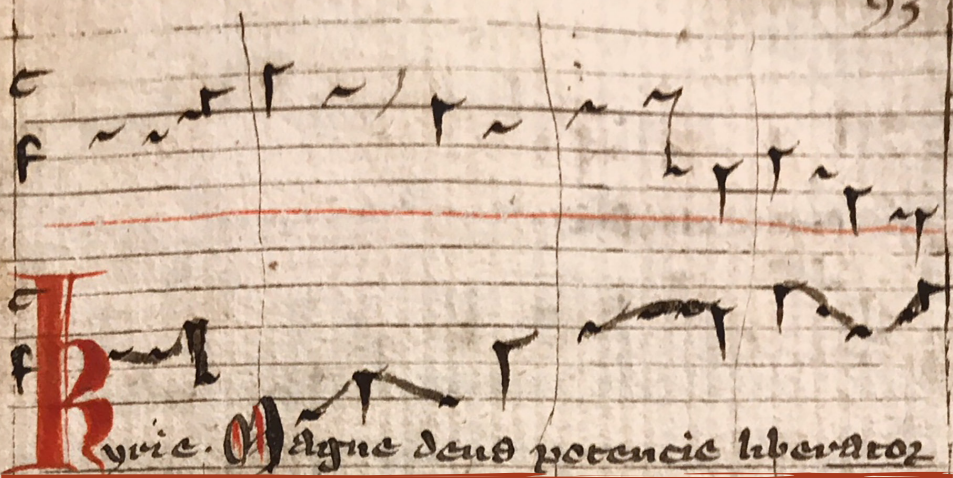 93
c
f
c
f
Kyrie. Magne deus potencie liberator